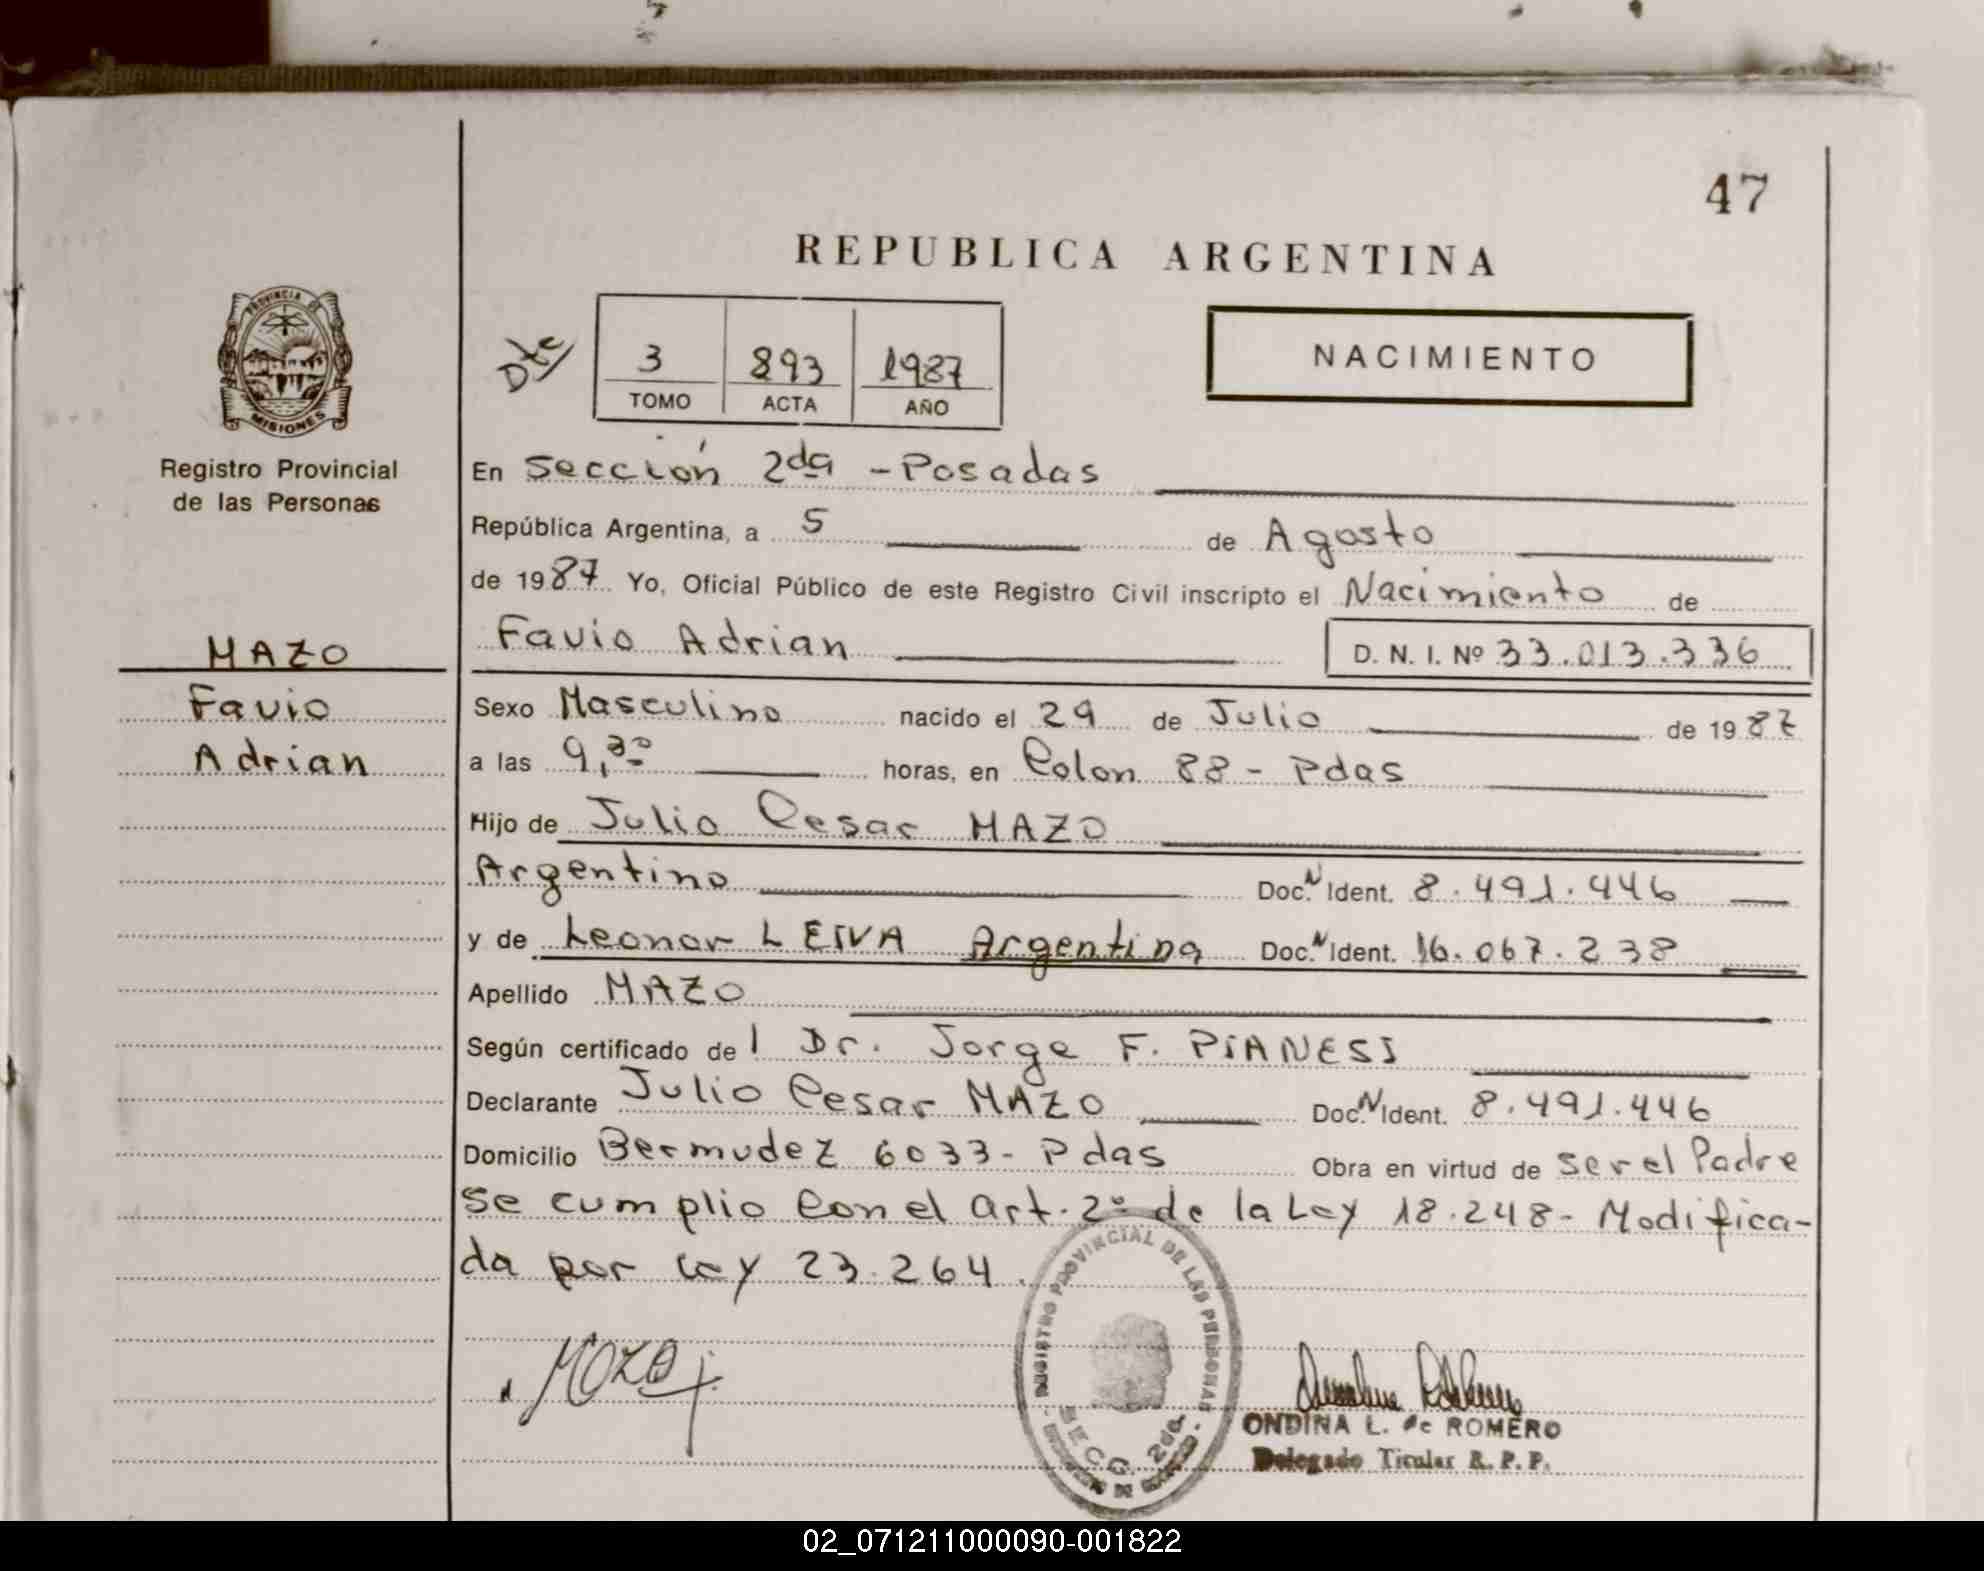 47
REPUBLICA ARGENTINA
PROVINCIA DE
MISIONES
Registro Provincial
de las Personas
Dte
3 893 1987
TOMO ACTA AÑO
NACIMIENTO
En Sección 2da - Posadas
República Argentina, a 5 de Agosto
de 1987 Yo, Oficial Público de este Registro Civil inscripto el Nacimiento de
Favio Adrian D. N. I. Nº 33.013.336
MAZO
Favio
Adrian
Sexo Masculino nacido el 29 de Julio de 1987
a las 9,30 horas, en Colon 88 - Pdas
Hijo de Julio Cesar MAZO
Argentino Doc. N Ident. 8.491.446
y de Leonor LEIVA Argentina Doc. N Ident. 16.067.238
Apellido MAZO
Según certificado de l Dr. Jorge F. PIANESI
Declarante Julio Cesar MAZO Doc. N Ident. 8.491.446
Domicilio Bermudez 6033 - Pdas Obra en virtud de ser el Padre
Se cumplio con el art. 2º de la Ley 18.248 - Modifica-
da por Ley 23.264.
REGISTRO PROVINCIAL DE LAS PERSONAS
SECC. 2da.
Mazo j.
ONDINA L. de ROMERO
Delegado Titular R. P. P.
02_071211000090-001822